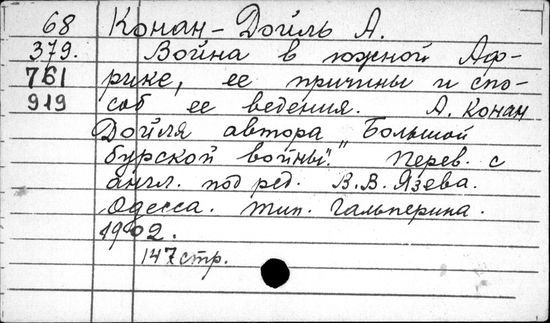 68 Конан-Дойль А.
379. Война в южной Аф-
761 рике, ее причины и спо-
919 соб ее ведения. А. Конан
Дойля автора Большой
бурской войны." Перев. с
англ. под ред. В.В. Язева.
Одесса. тип. Гальперина.
1902.
147 стр.